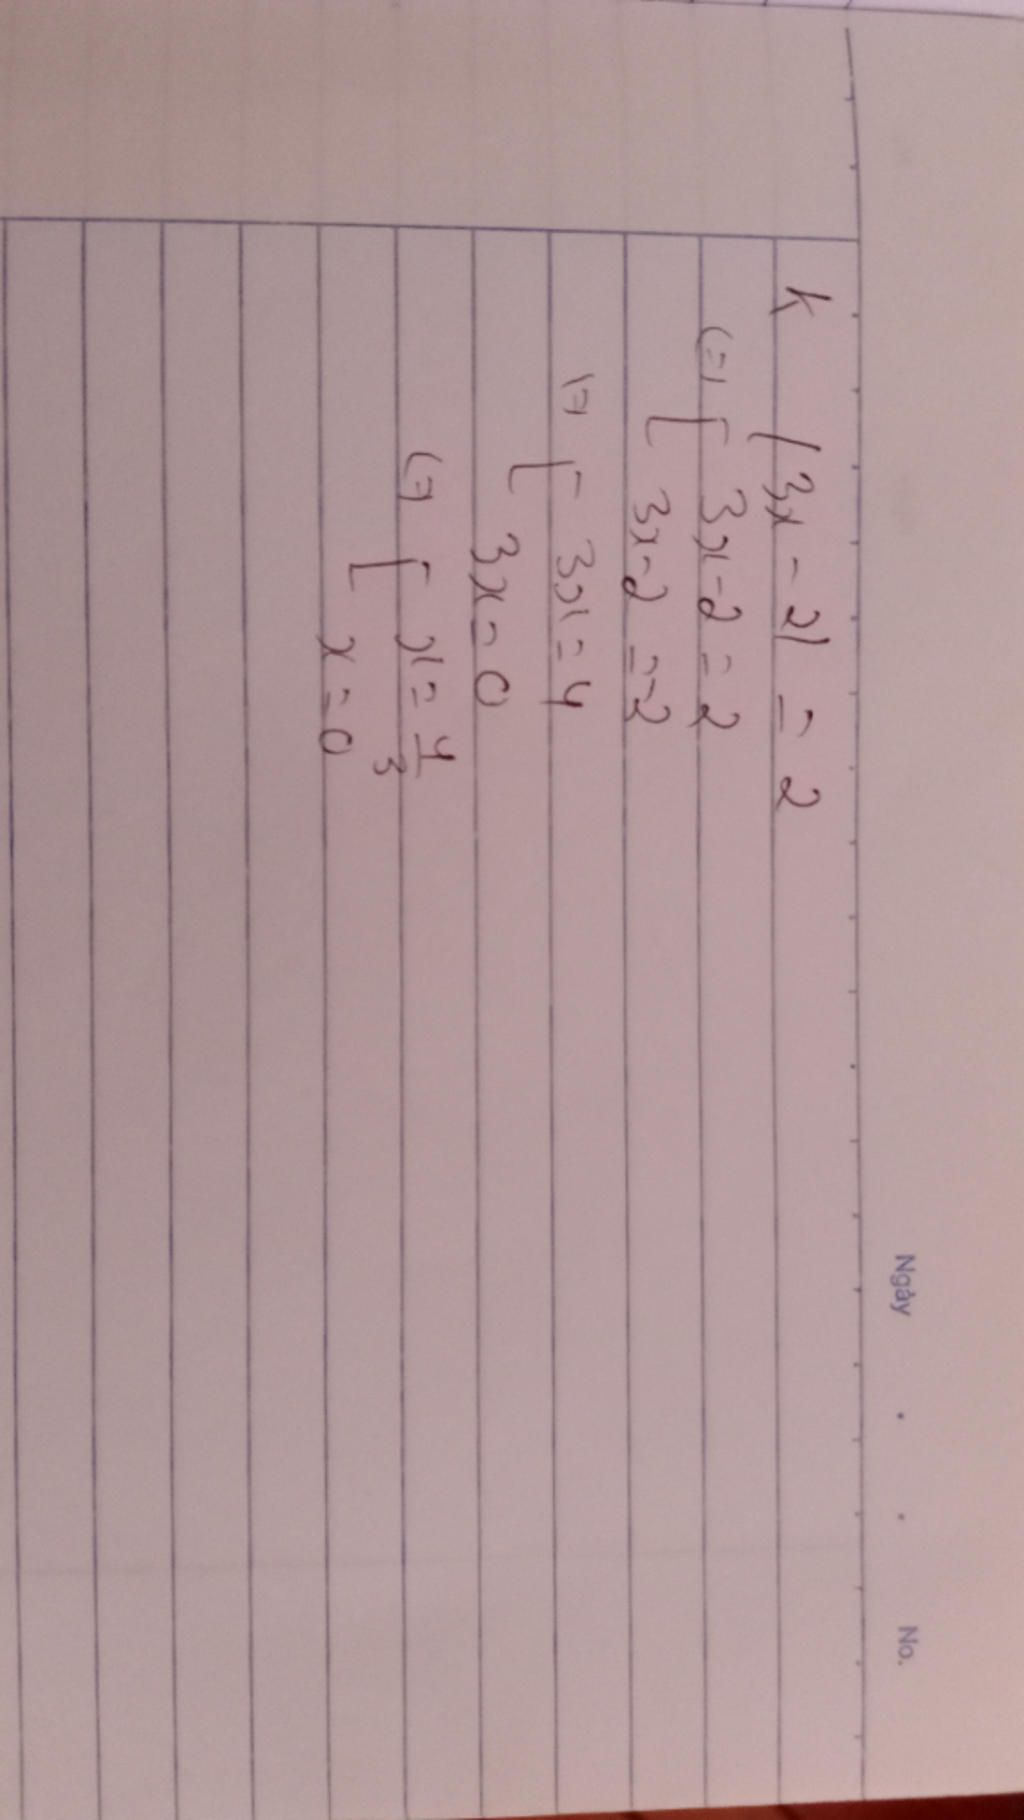 Ngày . . No.
k |3x - 2| = 2
(=) [ 3x - 2 = 2
3x - 2 = -2
(=) [ 3x = 4
3x = 0
(=) [ x = 4/3
x = 0